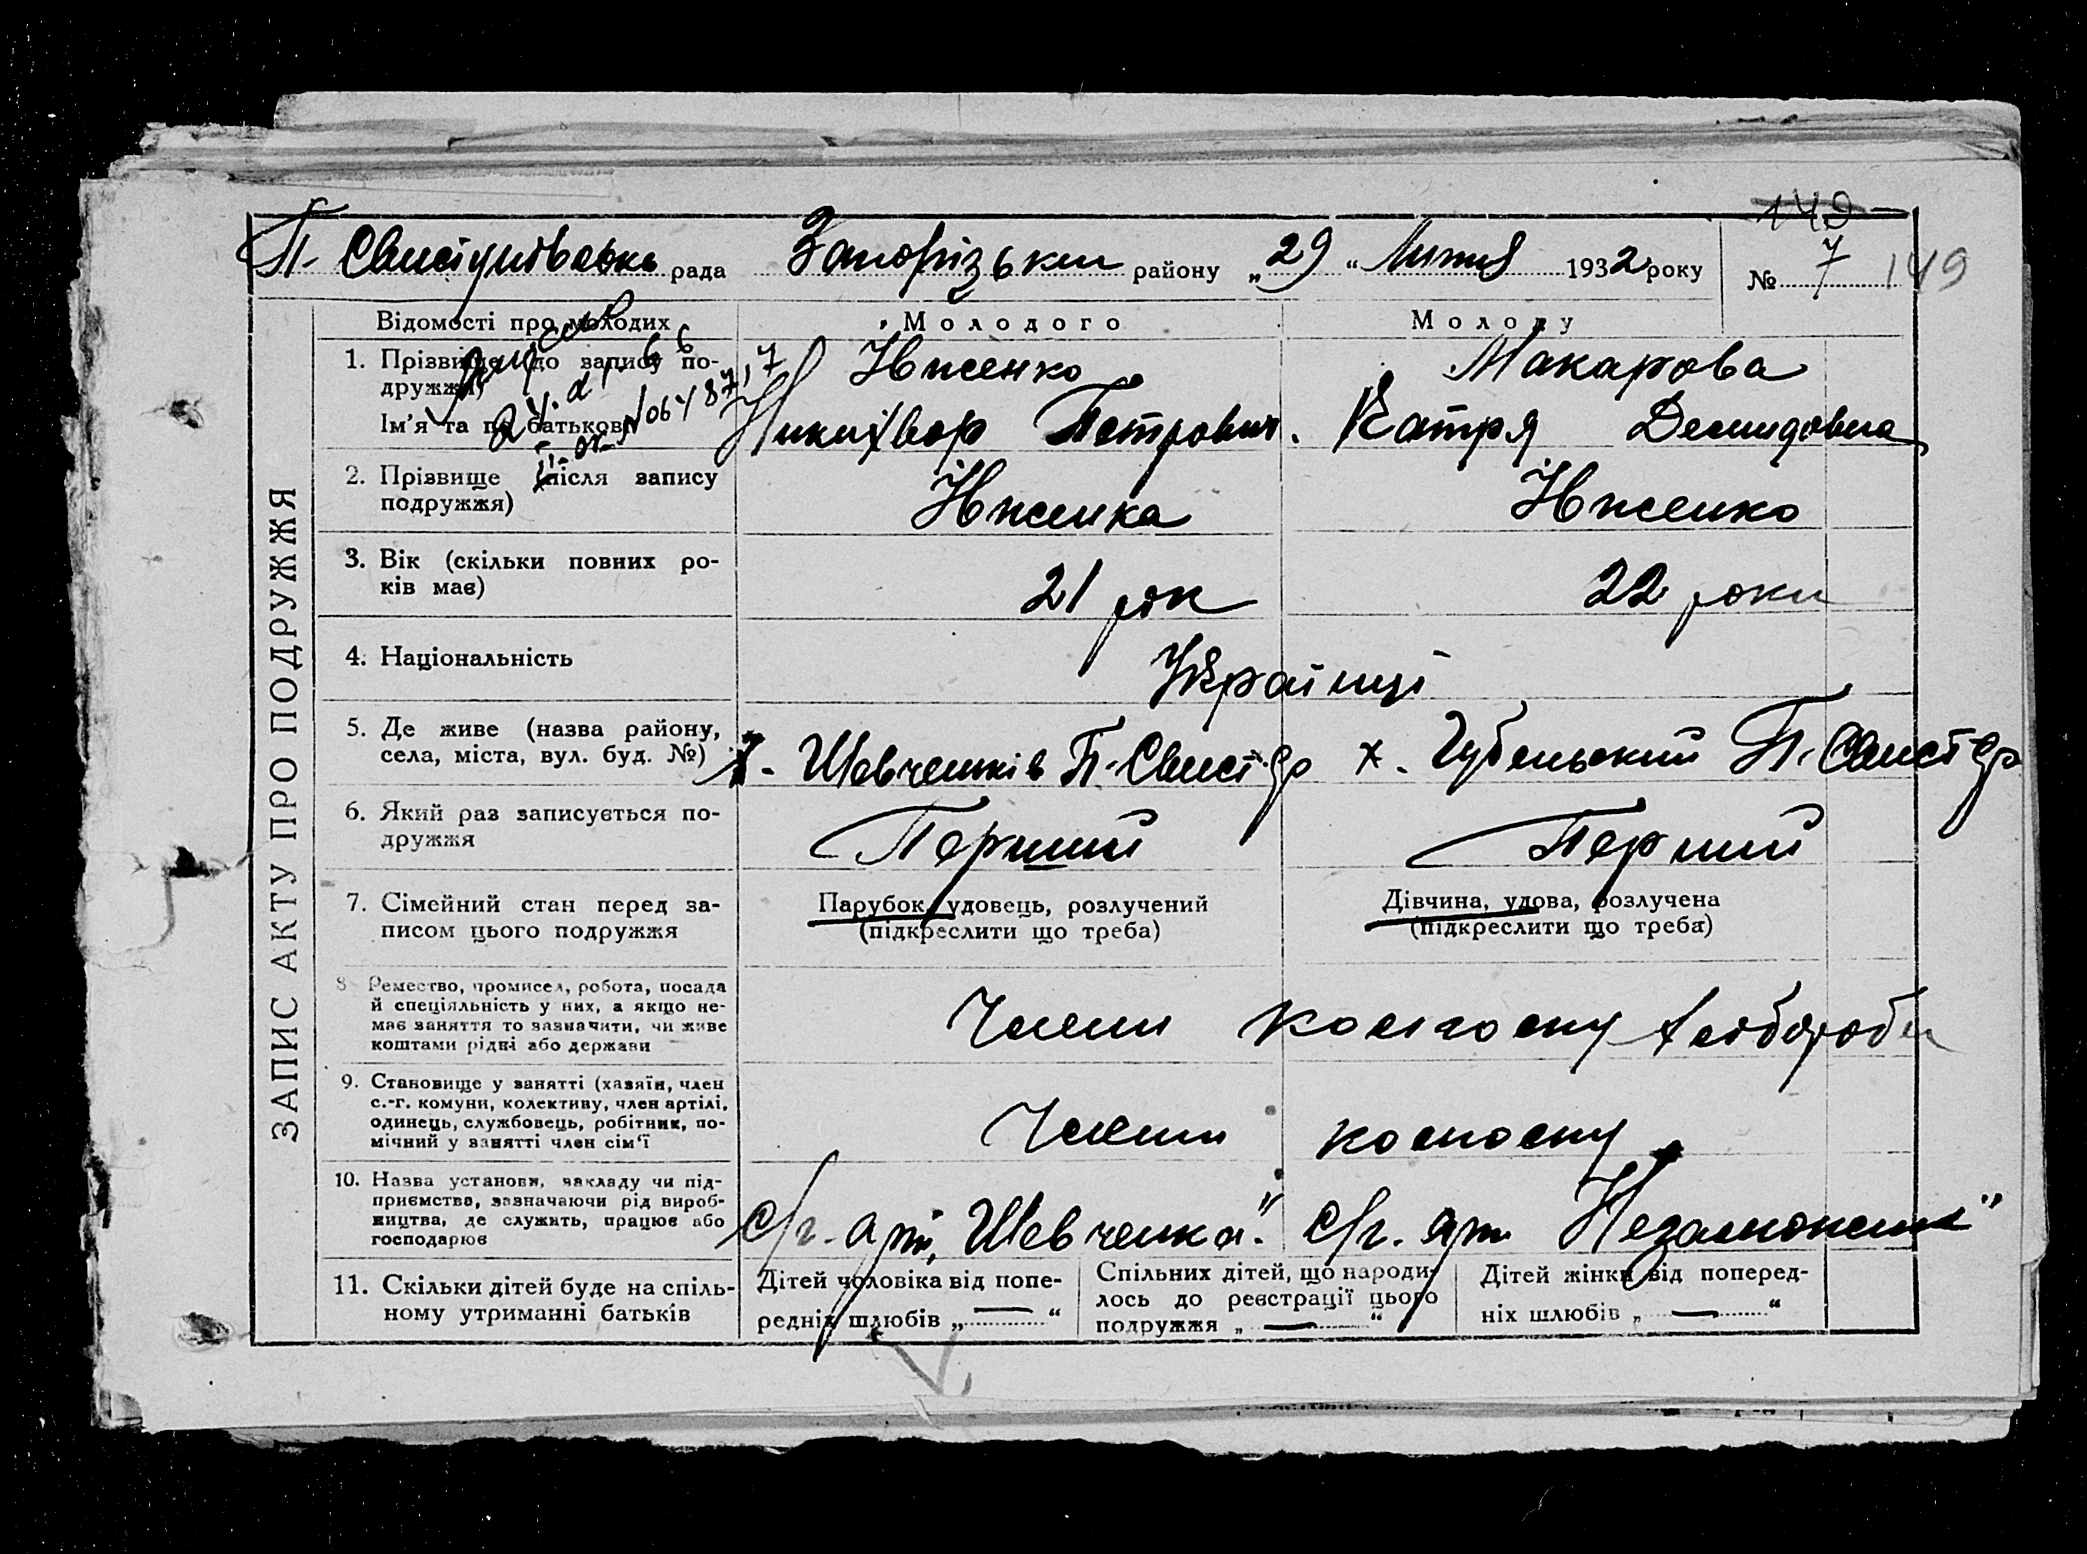 149
П. Свистунівська рада Запорізький району „29“ Липня 1932 року № 7 149
Відомості про молодих Молодого Молоду
1. Прізвище (до запису подружжя) Ївженко Макарова
Ім'я та по батькові Никихвор Петрович. Катря Демидовна
2. Прізвище (після запису
подружжя) Ївженка Ївженко
3. Вік (скільки повних ро-
ків має) 21 рік 22 роки
4. Національність Українці
5. Де живе (назва району,
села, міста, вул. буд. №) х. Шевченків П-Свист. х. П. Свист
6. Який раз записується по-
дружжя Перший Перший
7. Сімейний стан перед за- Парубок, удовець, розлучений Дівчина, удова, розлучена
писом цього подружжя (підкреслити що треба) (підкреслити що треба)
8 Ремество, промисел, робота, посада
й спеціяльність у них, а якщо не-
має заняття то зазначити, чи живе
коштами рідні або держави Члени колгоспу хлібороби
9. Становище у занятті (хазяїн, член
с.-г. комуни, колективу, член артілі,
одинець, службовець, робітник, по-
мічний у занятті член сім'ї Члени колгоспу
10. Назва установи, закладу чи під-
приємства, зазначаючи рід вироб-
ництва, де служить, працює або
господарює с/г. арт. „Шевченка“ с/г. арт. Незаможник“
11. Скільки дітей буде на спіль-
ному утриманні батьків
Дітей чоловіка від попе-
редніх шлюбів „ — “
Спільних дітей, що народи-
лось до реєстрації цього
подружжя „ — “
Дітей жінки від поперед-
ніх шлюбів „ — “
ЗАПИС АКТУ ПРО ПОДРУЖЖЯ